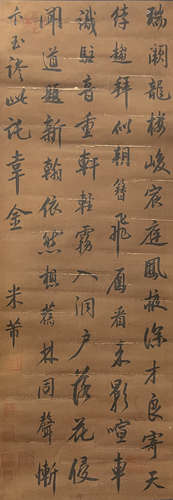 瑞闕龍樓峻宸庭鳳掖深才良寄天
趨拜似朝簪飛看来影喧車
識駐音重軒輕霧入洞户落花侵
聞道題新翰依然想舊林同聲慚
卞玉謬此託韋金
米芾